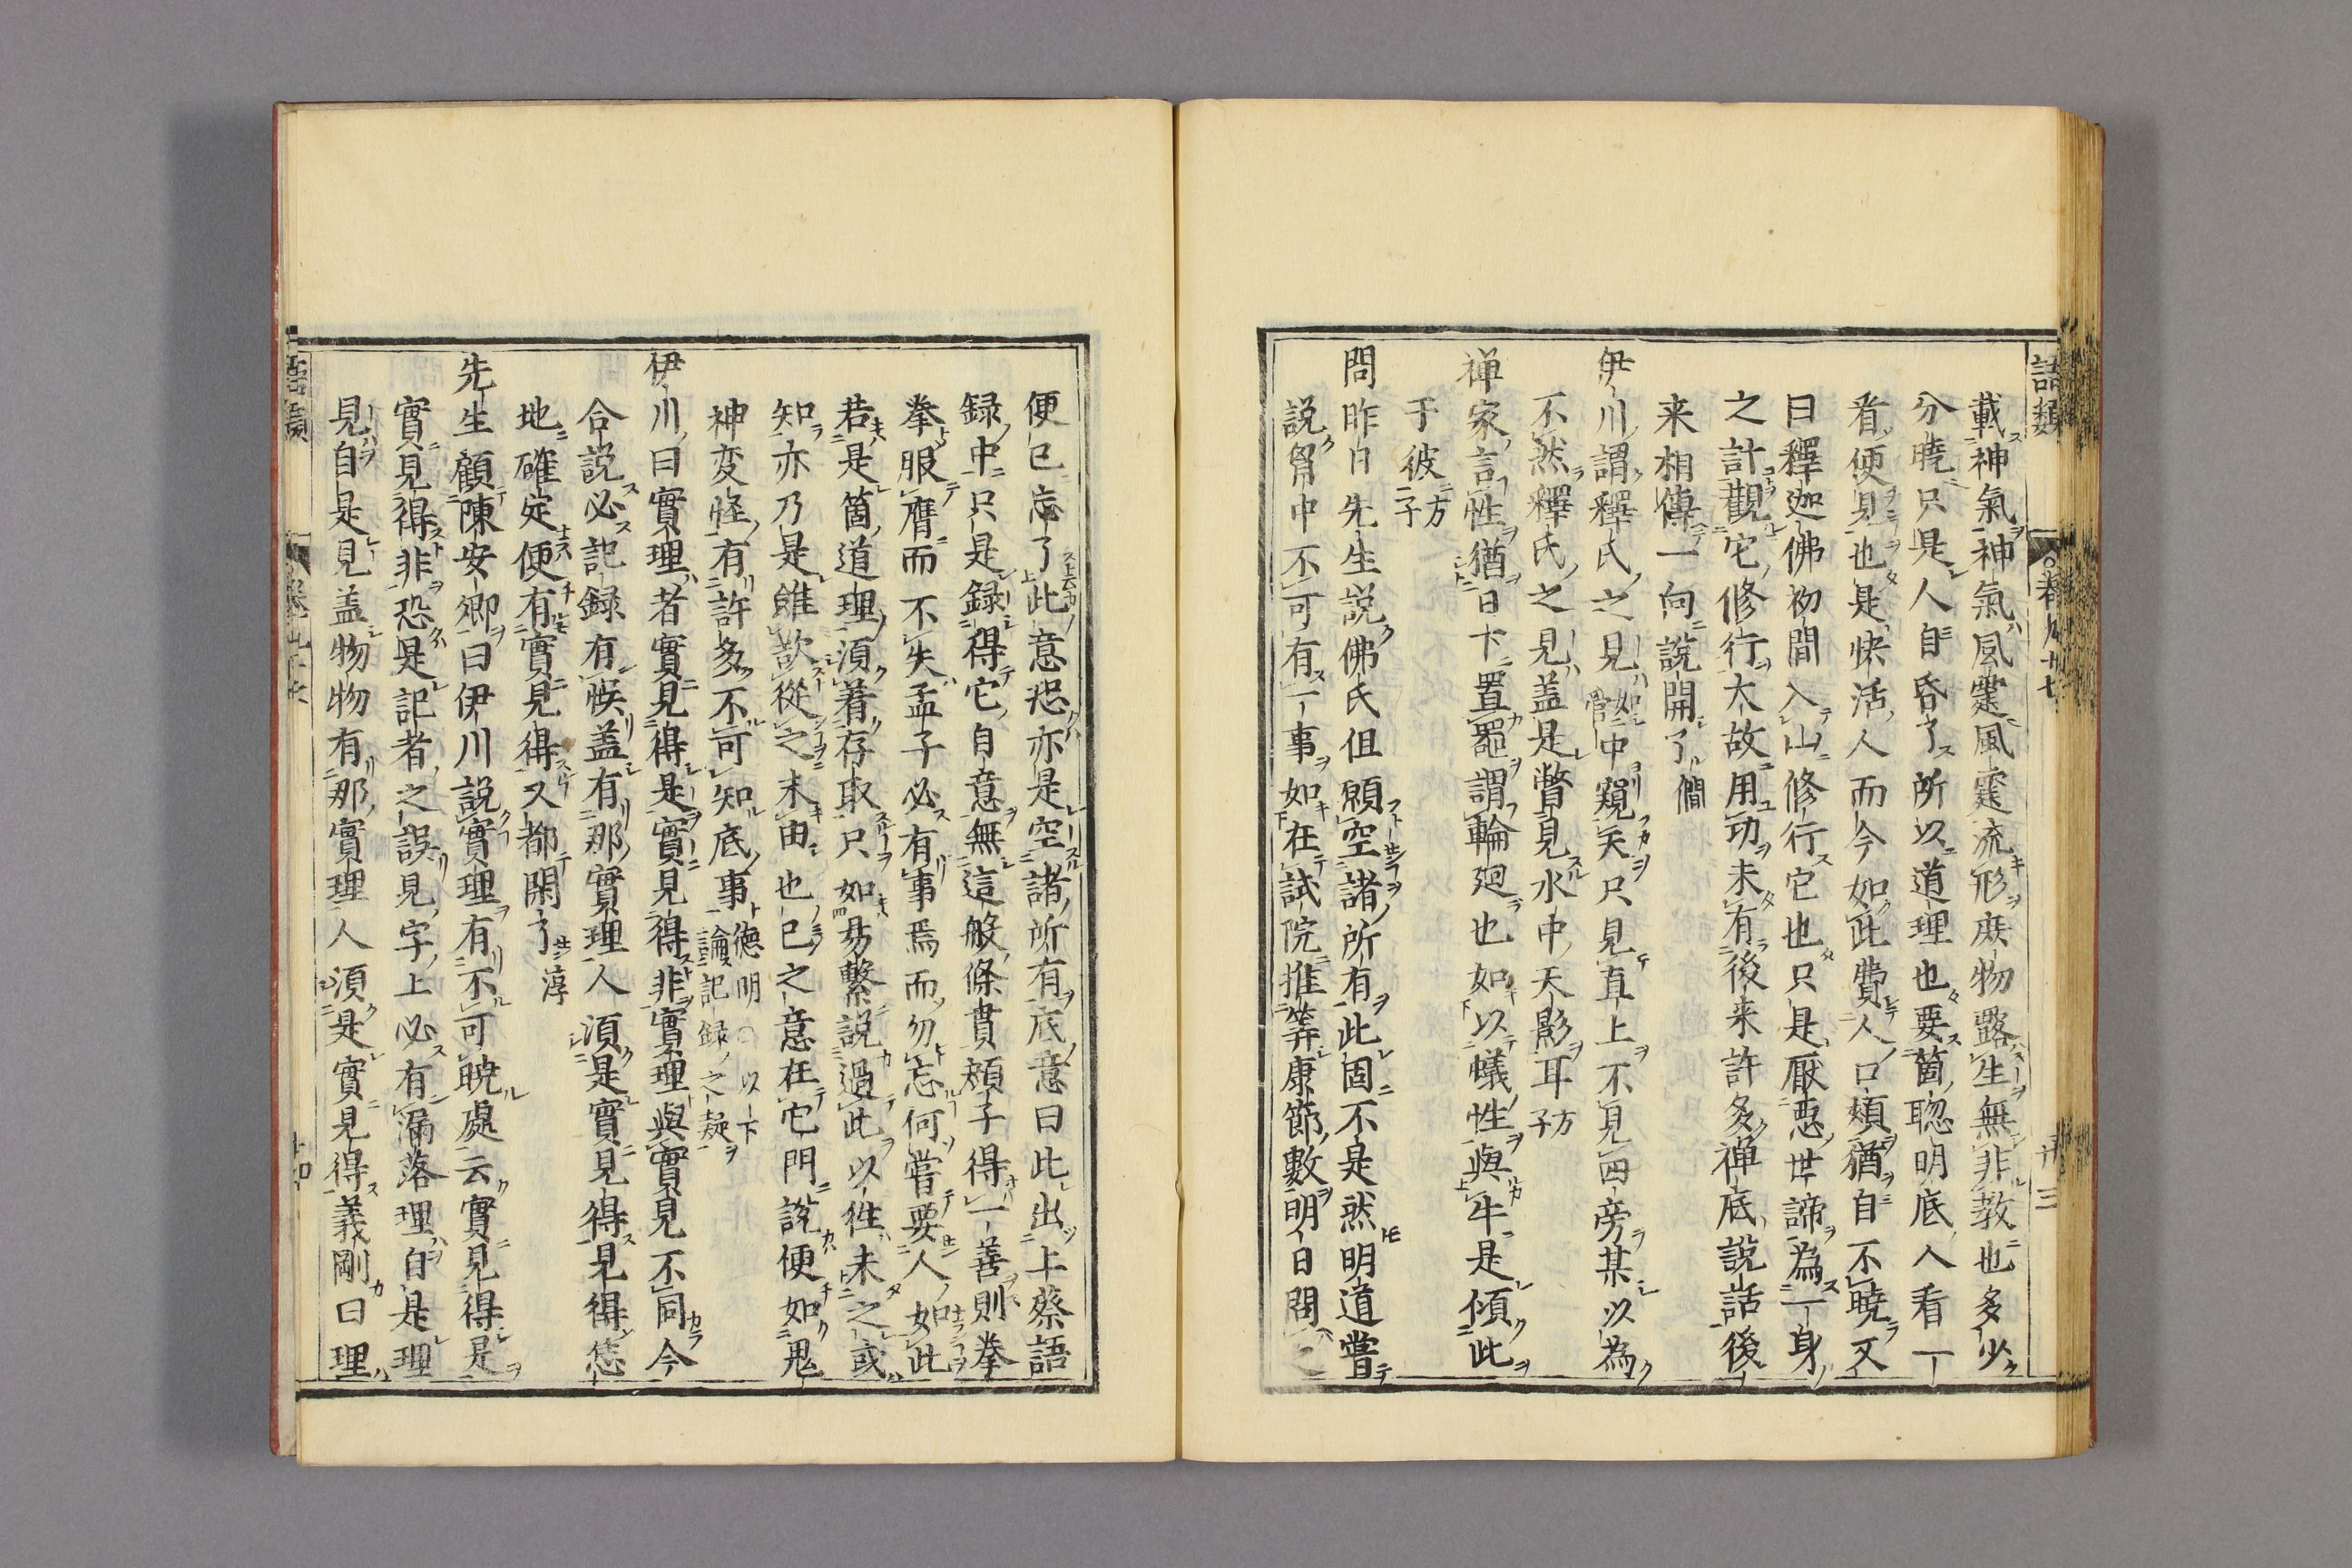 語類
卷九十七
三
載神氣神氣風霆風霆流形庶物露生無非教也多少
分曉只是人自昏了所以道理也要箇聦明底人看一
看便見也是快活人而今如此費人口頬猶自不曉又
曰釋迦佛初間入山修行它也只是厭惡世諦為一身
之計觀它修行大故用功未有後来許多禅底說話後
来相傳一向說開了僴
伊川謂釋氏之見如管中窺天只見直上不見四旁某以為
不然釋氏之見盖是瞥見水中天影耳方子
禅家言性猶日下置噐謂輪廻也如以蟻性與牛是傾此
于彼方子
問昨日先生説佛氏但願空諸所有此固不是然明道嘗
説胷中不可有一事如在試院推筭康節數明日問之
便已忘了此意恐亦是空諸所有底意曰此出上蔡語
録中只是録得它自意無這般條貫頬子得一善則拳
拳服膺而不失孟子必有事焉而勿忘何嘗要人如此
若是箇道理須着存取只如易繫説過此以徃未之或
知亦乃是雖欲從之末由也已之意在它門說便如鬼
神变怪有許多不可知底事德明○以下論記録之疑
伊川曰實理者實見得是實見得非實理與實見不同今
合説必記録有悞盖有那實理人須是實見得見得恁
地確定便有實見得又都閑了淳
先生顧陳安卿曰伊川説實理有不可曉處云實見得是
實見得非恐是記者之誤見字上必有漏落理自是理
見自是見盖物物有那實理人須是實見得義剛曰理